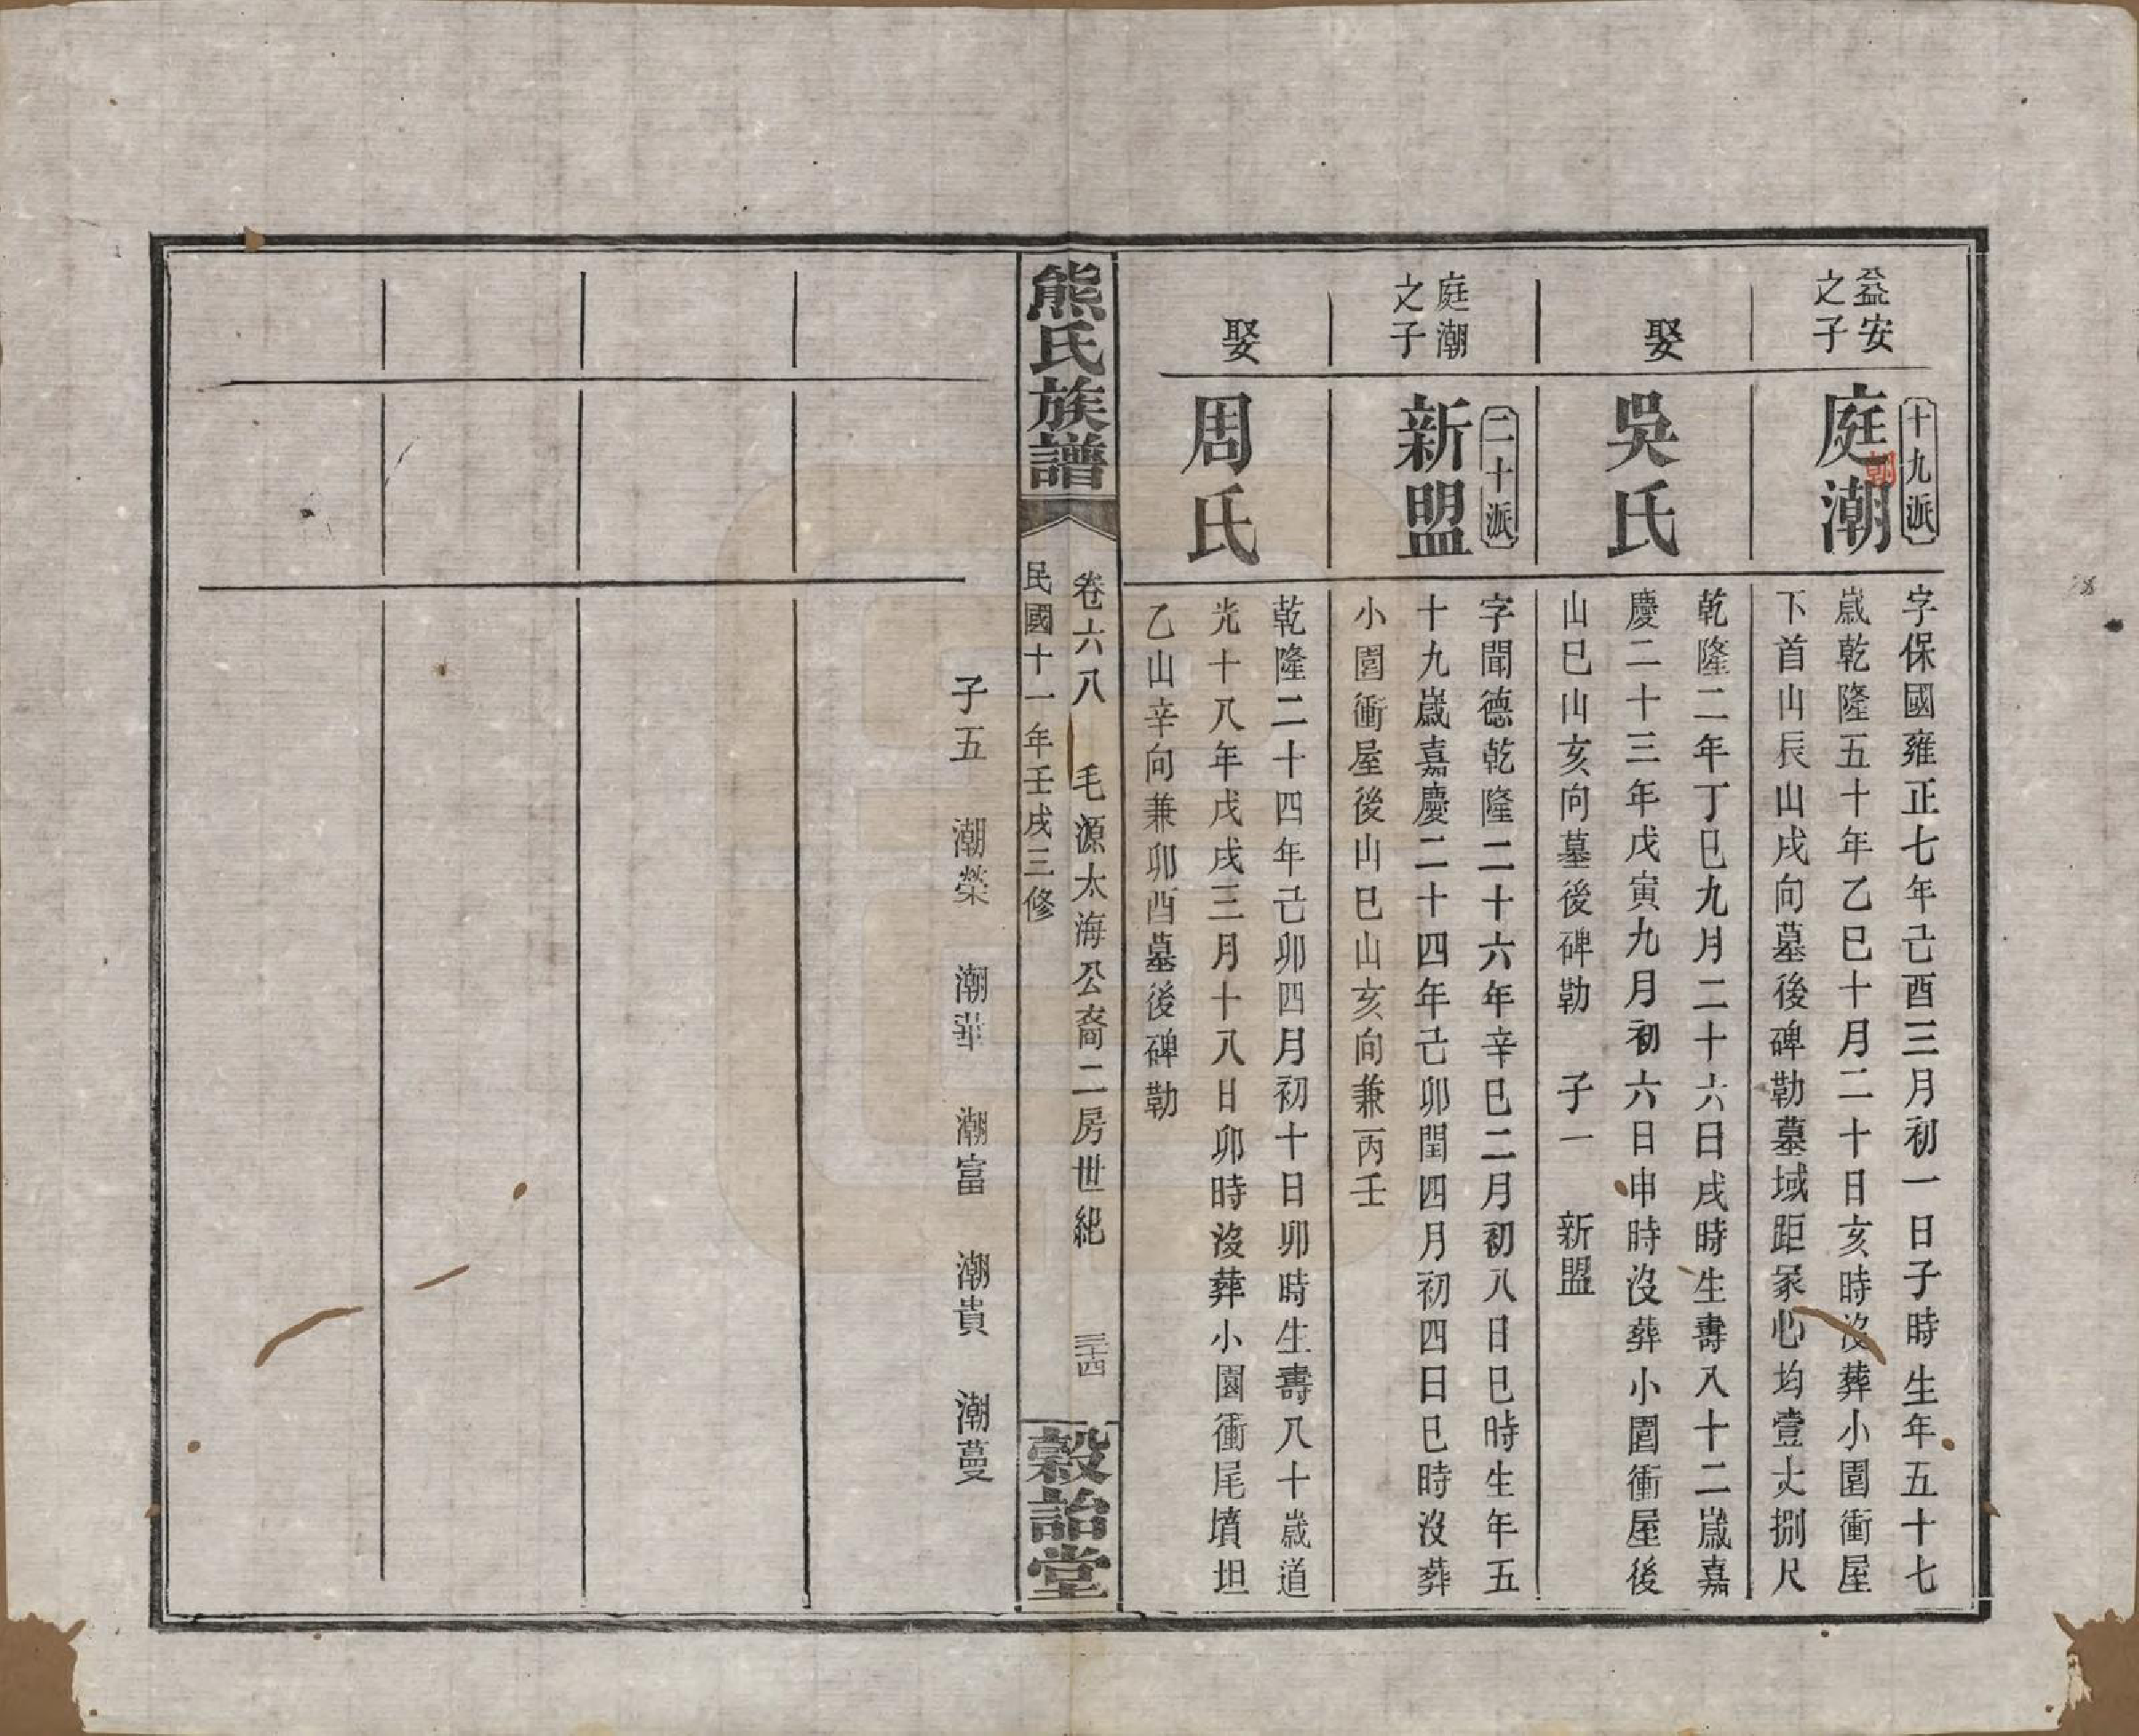 益安
之子
十九派
庭潮
字保國雍正七年己酉三月初一日子時生年五十七
歲乾隆五十年乙巳十月二十日亥時沒葬小園衝屋
下首山辰山戌向墓後碑勒墓域距冢心均壹丈捌尺
娶
吳氏
乾隆二年丁巳九月二十六日戌時生壽八十二歲嘉
慶二十三年戊寅九月初六日申時沒葬小園衝屋後
山巳山亥向墓後碑勒 子一 新盟
庭潮
之子
二十派
新盟
字聞德乾隆二十六年辛巳二月初八日巳時生年五
十九歲嘉慶二十四年己卯閏四月初四日巳時沒葬
小園衝屋後山巳山亥向兼丙壬
娶
周氏
乾隆二十四年己卯四月初十日卯時生壽八十歲道
光十八年戊戌三月十八日卯時沒葬小園衝尾墳坦
乙山辛向兼卯酉墓後碑勒
熊氏族譜
卷六八 毛源太海公裔二房世紀 三十四
民國十一年壬戌三修
穀詒堂
子五 潮榮 潮華 潮富 潮貴 潮蔓